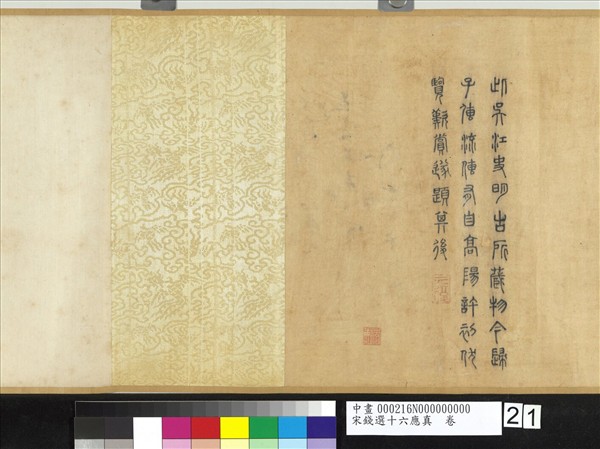 此吳江史明古所藏物今歸
子傳流傳有自高陽許初
覽歎賞遂題其後
中畫 000216N000000000
宋錢選十六應真 卷
21